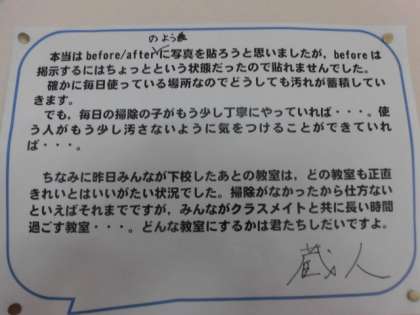 のように
本当はbefore/afterに写真を貼ろうと思いましたが，beforeは
掲示するにはちょっとという状態だったので貼れませんでした。
確かに毎日使っている場所なのでどうしても汚れが蓄積してい
きます。
でも，毎日の掃除の子がもう少し丁寧にやっていれば・・・。使
う人がもう少し汚さないように気をつけることができていれ
ば・・・。
ちなみに昨日みんなが下校したあとの教室は，どの教室も正直
きれいとはいいがたい状況でした。掃除がなかったから仕方ない
といえばそれまでですが，みんながクラスメイトと共に長い時間
過ごす教室・・・。どんな教室にするかは君たちしだいですよ。
蔵人